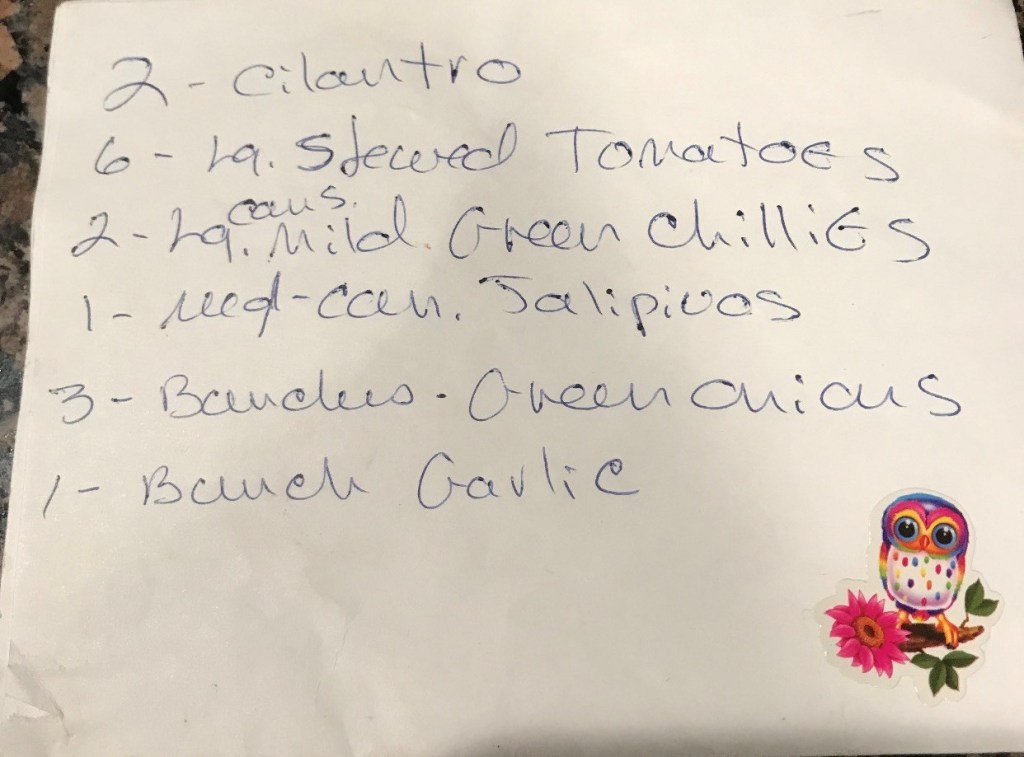 2 - Cilantro
6 - Lg. Stewed Tomatoes
cans.
2 - Lg. Mild. Green ChilliEs
1 - med-can. Jalipinos
3 - Bunches. Green onions
1 - Bunch Garlic